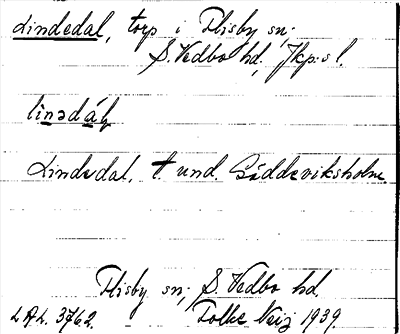 Lindedal, torp i Flisby sn.
S. Vedbo hd, Jkp:s l.
linədáḷ
Lindedal, t. und. Gäddeviksholm
Flisby sn; S. Vedbo hd.
LAL. 3762. Folke Neij 1939.